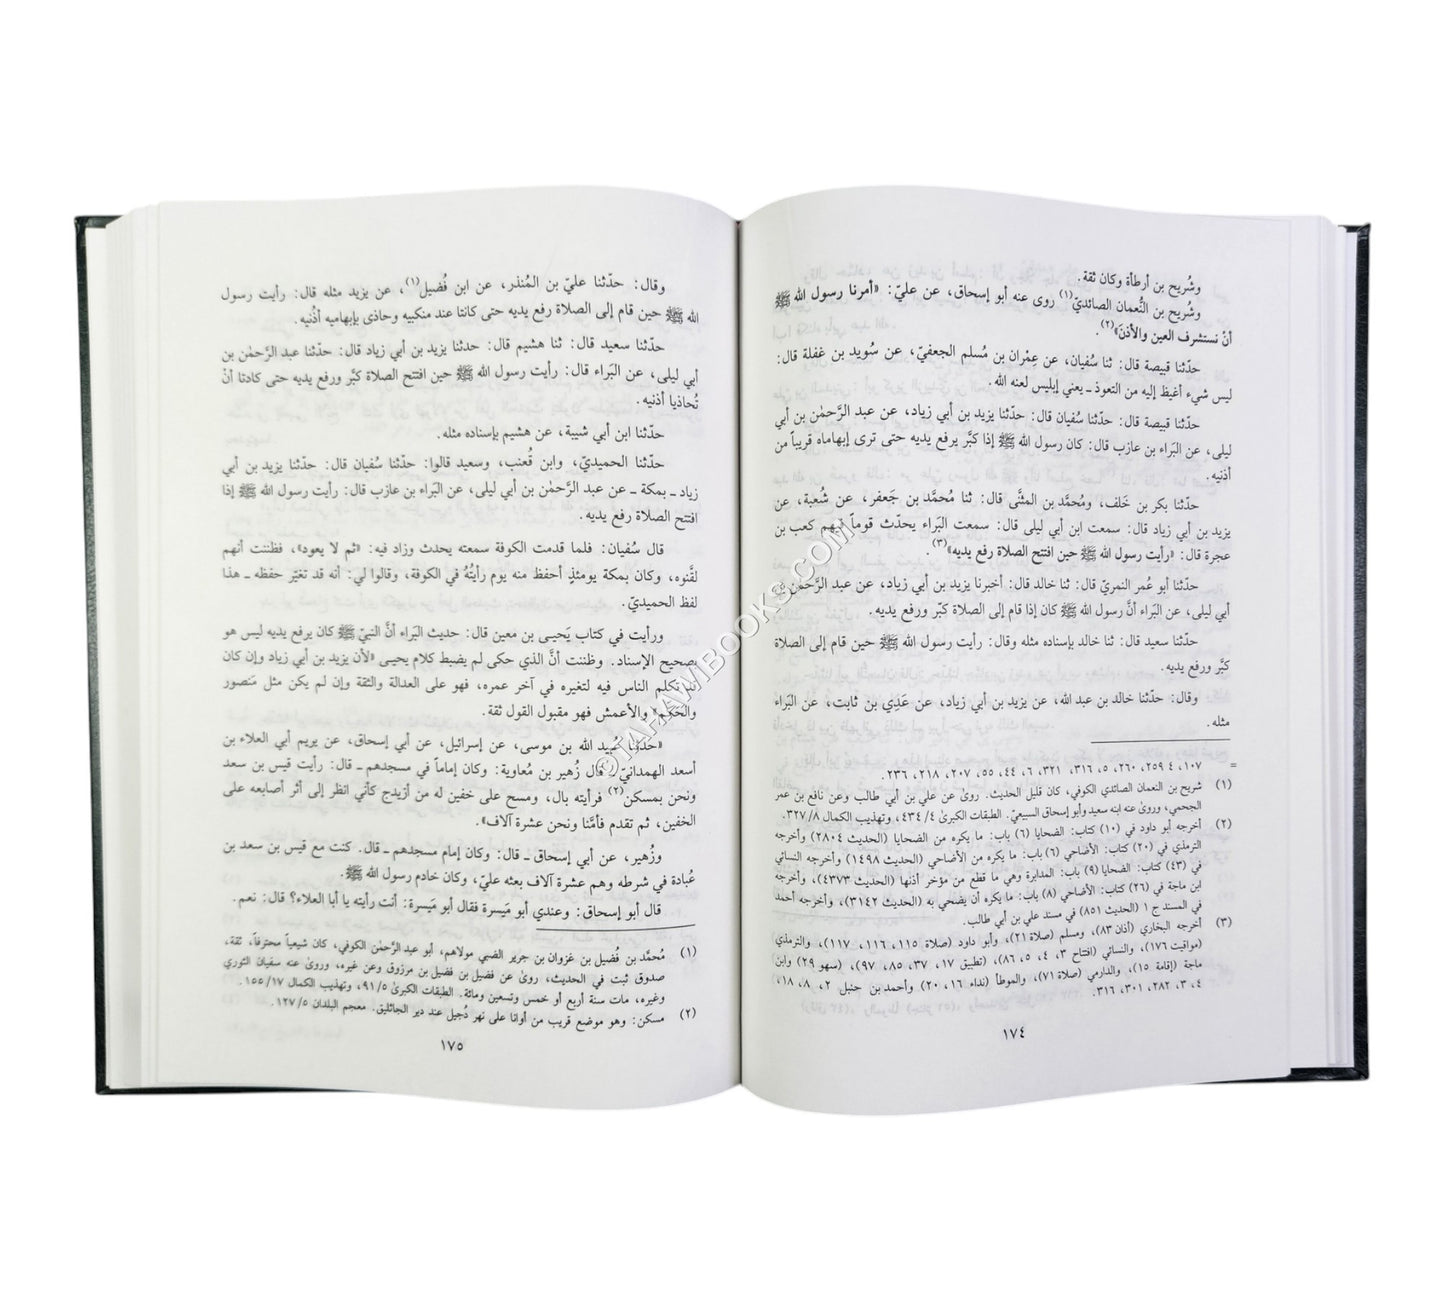 وشُريح بن أرطأة وكان ثقة.
وشُريح بن النُّعمان الصائديّ(١) روى عنه أبو إسحاق، عن عليّ: «أمرنا رسول الله ﷺ
أنْ نستشرف العين والأذنَ»(٢).
حدّثنا قبيصة قال: ثنا سُفيان، عن عِمْران بن مُسلم الجعفيّ، عن سُويد بن غفلة قال:
ليس شيء أغيظ إليه من التعوذ ـ يعني إبليس لعنه الله.
حدّثنا قبيصة قال: حدّثنا سُفيان قال: حدّثنا يزيد بن أبي زياد، عن عبد الرَّحمٰن بن أبي
ليلى، عن البَراء بن عازب قال: كان رسول الله ﷺ إذا كبَّر يرفع يديه حتى ترى إبهاماه قريباً من
أذنيه.
حدّثنا بكر بن خَلف، ومُحمَّد بن المثنَّى قال: ثنا مُحمَّد بن جَعفر، عن شُعبة، عن
يزيد بن أبي زياد قال: سمعت ابن أبي ليلى قال: سمعت البَراء يحدّث قوماً فيهم كعب بن
عجرة قال: «رأيت رسول الله ﷺ حين افتتح الصلاة رفع يديه»(٣).
حدّثنا أبو عُمر النمريّ قال: ثنا خالد قال: أخبرنا يزيد بن أبي زياد، عن عبد الرَّحمٰن بن
أبي ليلى، عن البَراء أنَّ رسول الله ﷺ كان إذا قام إلى الصلاة كبّر ورفع يديه.
حدّثنا سعيد قال: ثنا خالد بإسناده مثله وقال: رأيت رسول الله ﷺ حين قام إلى الصلاة
كبَّر ورفع يديه.
وقال: حدّثنا خالد بن عبد الله، عن يزيد بن أبي زياد، عن عَدِي بن ثابت، عن البَراء
مثله.
= ١٠٧، ٤ ٢٥٩، ٢٦٠، ٥، ٣١٦، ٣٢١، ٦، ٤٤، ٥٥، ٢٠٧، ٢١٨، ٢٣٦.
(١) شريح بن النعمان الصائدي الكوفي، كان قليل الحديث. روىٰ عن علي بن أبي طالب وعن نافع بن عمر
الجمحي، وروىٰ عنه ابنه سعيد وأبو إسحاق السبيعيّ. الطبقات الكبرىٰ ٤/ ٤٣٤، وتهذيب الكمال ٨/ ٣٢٧.
(٢) أخرجه أبو داود في (١٠) كتاب: الضحايا (٦) باب: ما يكره من الضحايا (الحديث ٢٨٠٤) وأخرجه
الترمذي في (٢٠) كتاب: الأضاحي (٦) باب: ما يكره من الأضاحي (الحديث ١٤٩٨) وأخرجه النسائي
في (٤٣) كتاب: الضحايا (٩) باب: المدابرة وهي ما قطع من مؤخر أذنها (الحديث ٤٣٧٣)، وأخرجه
ابن ماجة في (٢٦) كتاب: الأضاحي (٨) باب: ما يكره أن يضحي به (الحديث ٣١٤٢)، وأخرجه أحمد
في المسند ج ١ (الحديث ٨٥١) في مسند علي بن أبي طالب.
(٣) أخرجه البخاري (أذان ٨٣)، ومسلم (صلاة ٢١)، وأبو داود (صلاة ١١٥، ١١٦، ١١٧)، والترمذي
(مواقيت ١٧٦)، والنسائي (افتتاح ٣، ٤، ٥، ٨٦)، (تطبيق ١٧، ٣٧، ٨٥، ٩٧)، (سهو ٢٩) وابن
ماجة (إقامة ١٥)، والدارمي (صلاة ٧١)، والموطأ (نداء ١٦، ٢٠) وأحمد بن حنبل ٢، ٨، ١٨،
٤، ٣، ٢٨٢، ٣٠١، ٣١٦.
١٧٤
وقال: حدّثنا عليّ بن المُنذر، عن ابن فُضيل(١)، عن يزيد مثله قال: رأيت رسول
الله ﷺ حين قام إلى الصلاة رفع يديه حتى كانتا عند منكبيه وحاذى بإبهاميه أذُنيه.
حدّثنا سعيد قال: ثنا هشيم قال: حدثنا يزيد بن أبي زياد قال: حدّثنا عبد الرَّحمٰن بن
أبي ليلى، عن البَراء قال: رأيت رسول الله ﷺ حين افتتح الصلاة كبَّر ورفع يديه حتى كادتا أنْ
تُحاذيا أذنيه.
حدّثنا ابن أبي شيبة، عن هشيم بإسناده مثله.
حدّثنا الحميديّ، وابن قُعنب، وسعيد قالوا: حدّثنا سُفيان قال: حدّثنا يزيد بن أبي
زياد ـ بمكة ـ عن عبد الرَّحمٰن بن أبي ليلى، عن البَراء بن عازب قال: رأيت رسول الله ﷺ إذا
افتتح الصلاة رفع يديه.
قال سُفيان: فلما قدمت الكوفة سمعته يحدث وزاد فيه: «ثم لا يعود»، فظننت أنهم
لقَّنوه، وكان بمكة يومئذٍ أحفظ منه يوم رأيتُهُ في الكوفة، وقالوا لي: أنه قد تغيّر حفظه ـ هذا
لفظ الحميديّ.
ورأيت في كتاب يَحيـى بن معين قال: حديث البَراء أنَّ النبيّ ﷺ كان يرفع يديه ليس هو
بصحيح الإسناد. وظننت أنَّ الذي حكى لم يضبط كلام يحيـى «لأن يزيد بن أبي زياد وإن كان
قد تكلم الناس فيه لتغيره في آخر عمره، فهو على العدالة والثقة وإن لم يكن مثل مَنصور
والحَكم والأعمش فهو مقبول القول ثقة.
«حدّثنا عُبيد الله بن موسى، عن إسرائيل، عن أبي إسحاق، عن يريم أبي العلاء بن
أسعد الهمدانيّ ـ قال زُهير بن مُعاوية: وكان إماماً في مسجدهم ـ قال: رأيت قيس بن سعد
ونحن بمسكن(٢) فرأيته بال، ومسح على خفين له من أزيدج كأني انظر إلى أثر أصابعه على
الخفين، ثم تقدم فأمَّنا ونحن عشرة آلاف».
وزُهير، عن أبي إسحاق ـ قال: وكان إمام مسجدهم ـ قال. كنت مع قيس بن سعد بن
عُبادة في شرطه وهم عشرة آلاف بعثه عليّ، وكان خادم رسول الله ﷺ.
قال أبو إسحاق: وعندي أبو مَيسرة فقال أبو مَيسرة: أنت رأيته يا أبا العلاء؟ قال: نعم.
(١) مُحمَّد بن فُضيل بن غزوان بن جرير الضبي مولاهم، أبو عبد الرَّحمٰن الكوفي، كان شيعياً محترفاً، ثقة،
صدوق ثبت في الحديث، روىٰ عن فضيل بن فضيل بن مرزوق وعن غيره، وروىٰ عنه سفيان الثوري
وغيره، مات سنة أربع أو خمس وتسعين ومائة. الطبقات الكبرىٰ ٥/ ٩١، وتهذيب الكمال ١٧/ ١٥٥.
(٢) مسكن: وهو موضع قريب من أوانا على نهر دُجيل عند دير الجاثليق. معجم البلدان ٥/ ١٢٧.
١٧٥
©TAHAWIBOOKS.COM